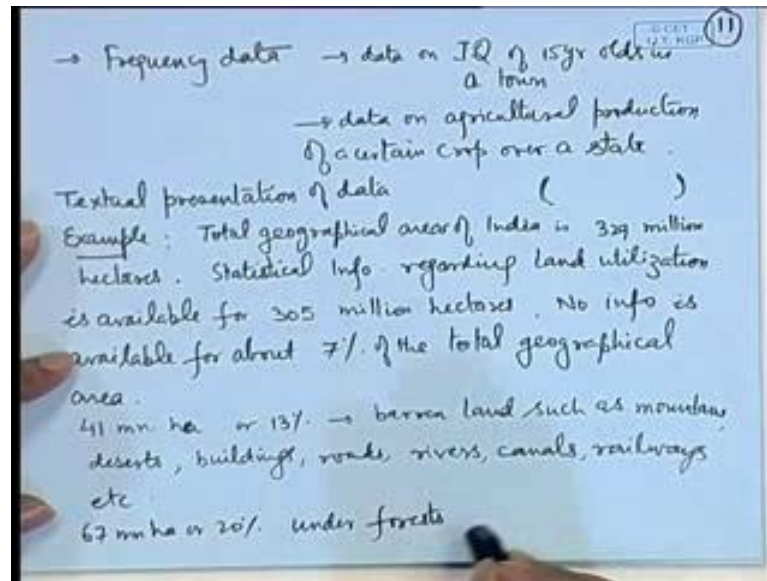 11
→ Frequency data → data on IQ of 15yr olds in
a town
→ data on agricultural production
of a certain crop over a state.
Textual presentation of data ( )
Example: Total geographical area of India is 329 million
hectares. Statistical Info regarding Land utilization
is available for 305 million hectares. No info is
available for about 7% of the total geographical
area.
41 mn ha or 13% → barren land such as mountains,
deserts, buildings, roads, rivers, canals, railways
etc
67 mn ha or 20% under forests